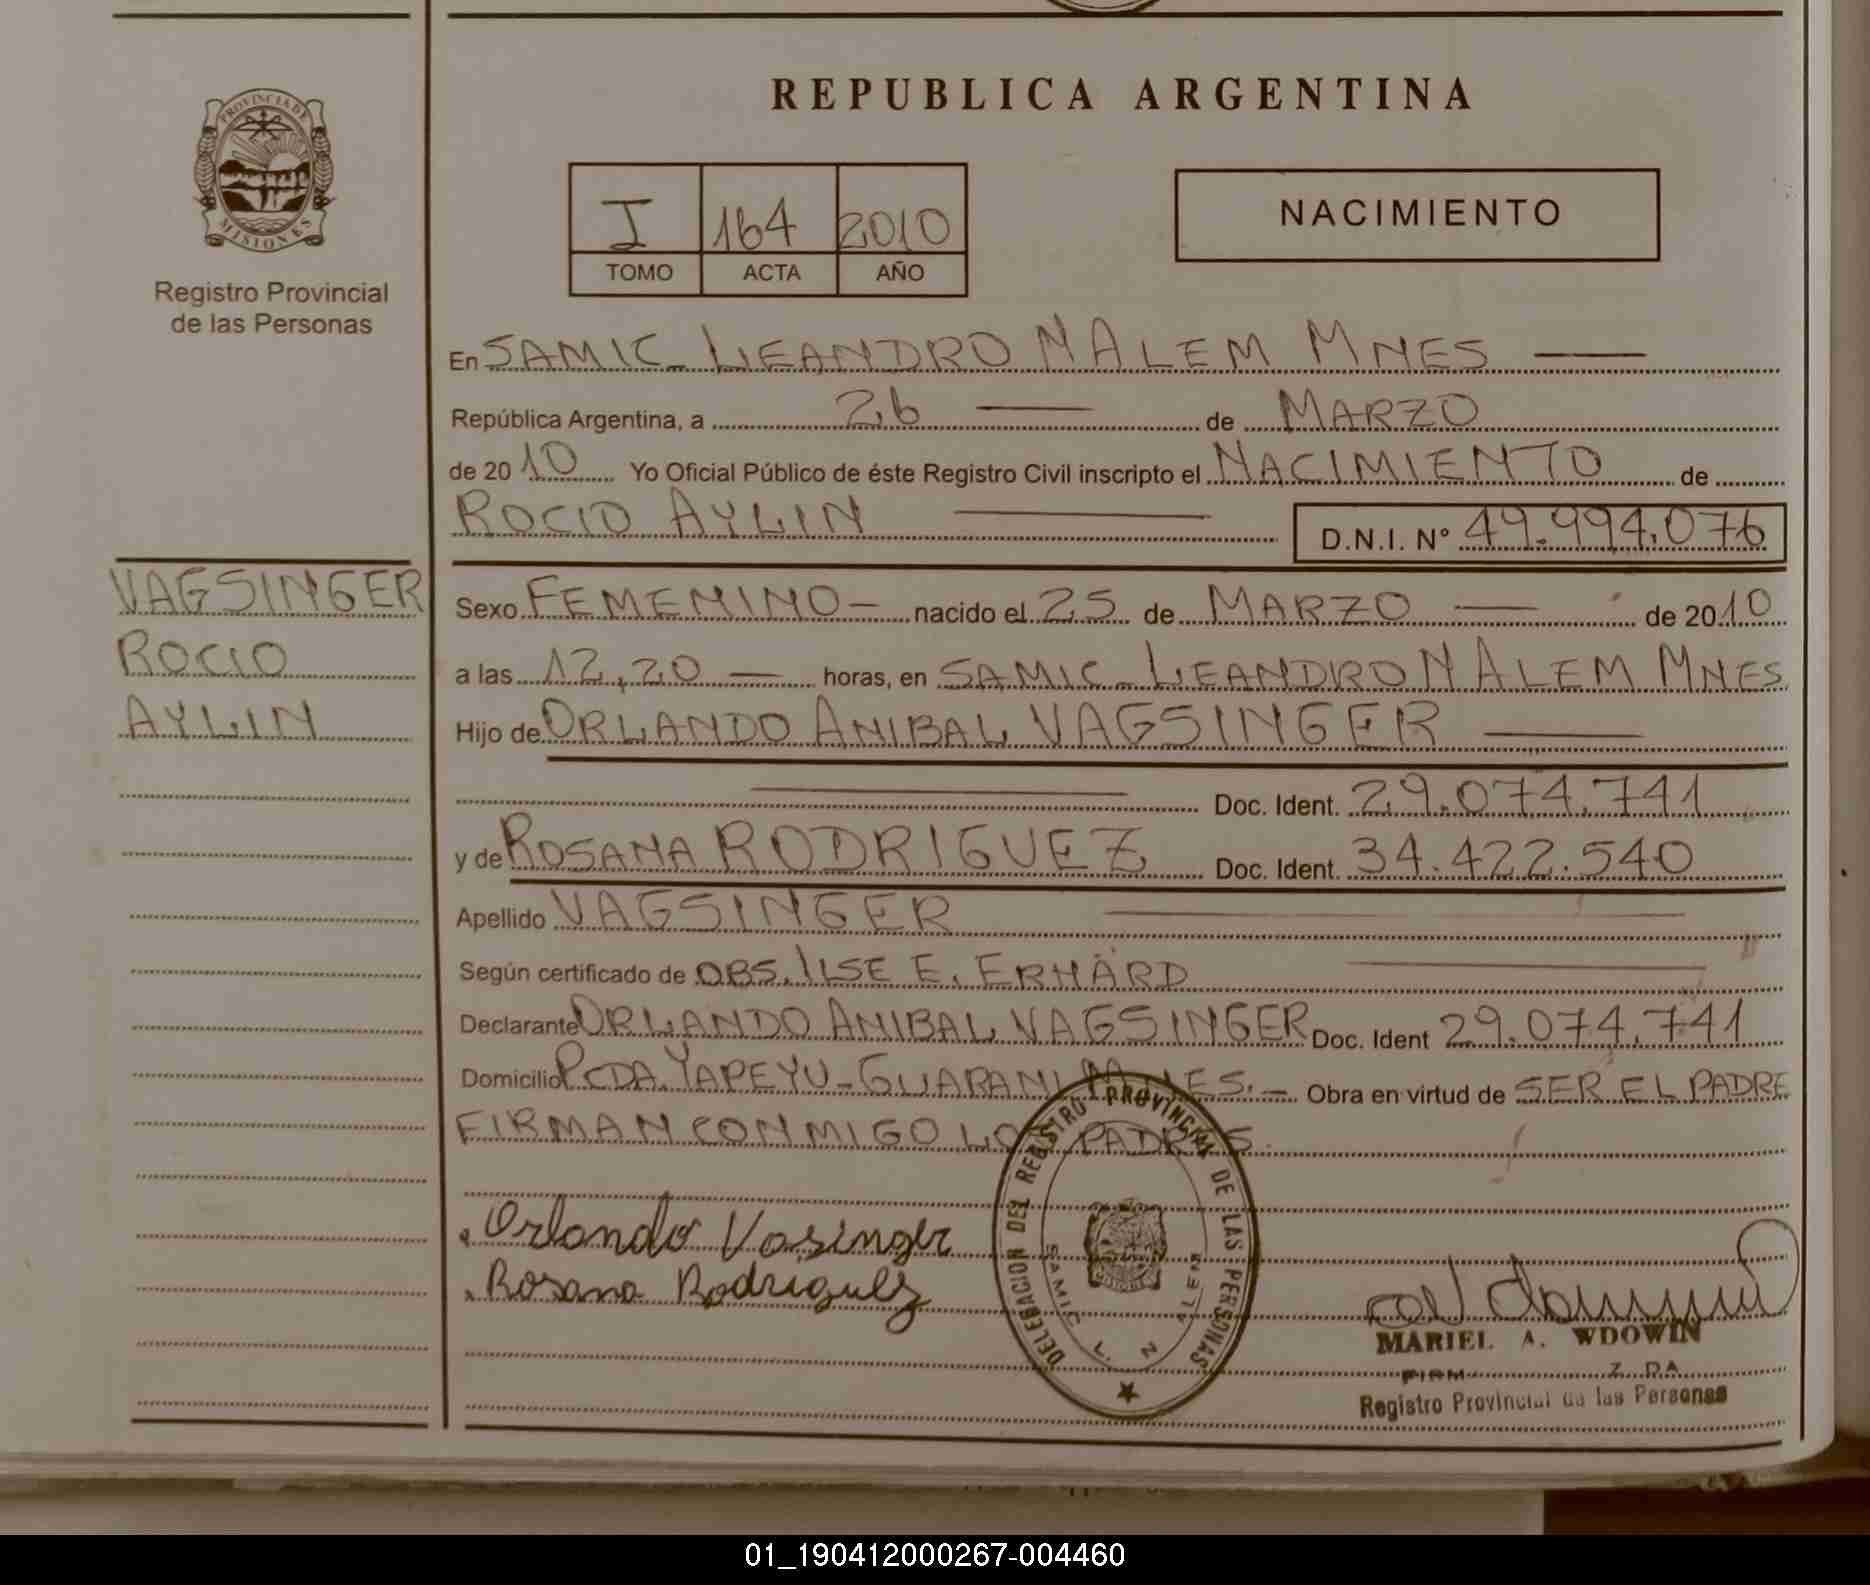 REPUBLICA ARGENTINA
PROVINCIA DE
MISIONES
Registro Provincial
de las Personas
I 164 2010
TOMO ACTA AÑO
NACIMIENTO
En SAMIC - LEANDRO N ALEM MNES
República Argentina, a 26 de MARZO
de 2010 Yo Oficial Público de éste Registro Civil inscripto el NACIMIENTO de
ROCIO AYLIN D.N.I. Nº 49.994.076
VAGSINGER
ROCIO
AYLIN
Sexo FEMENINO - nacido el 25 de MARZO de 2010
a las 12,20 horas, en SAMIC - LEANDRO N ALEM MNES
Hijo de ORLANDO ANIBAL VAGSINGER
Doc. Ident. 29.074.741
y de ROSANA RODRIGUEZ Doc. Ident. 34.422.540
Apellido VAGSINGER
Según certificado de OBS. ILSE E. ERHARD
Declarante ORLANDO ANIBAL VAGSINGER Doc. Ident 29.074.741
Domicilio PCDA. YAPEYU - GUARANI MNES. - Obra en virtud de SER EL PADRE
FIRMAN CONMIGO LOS PADRES.
Orlando Vasinger
Rosana Rodriguez
DELEGACION DEL REGISTRO PROVINCIAL DE LAS PERSONAS
SAMIC L. N ALEM
MARIEL A. WDOWIN
Registro Provincial de las Personas
01_190412000267-004460